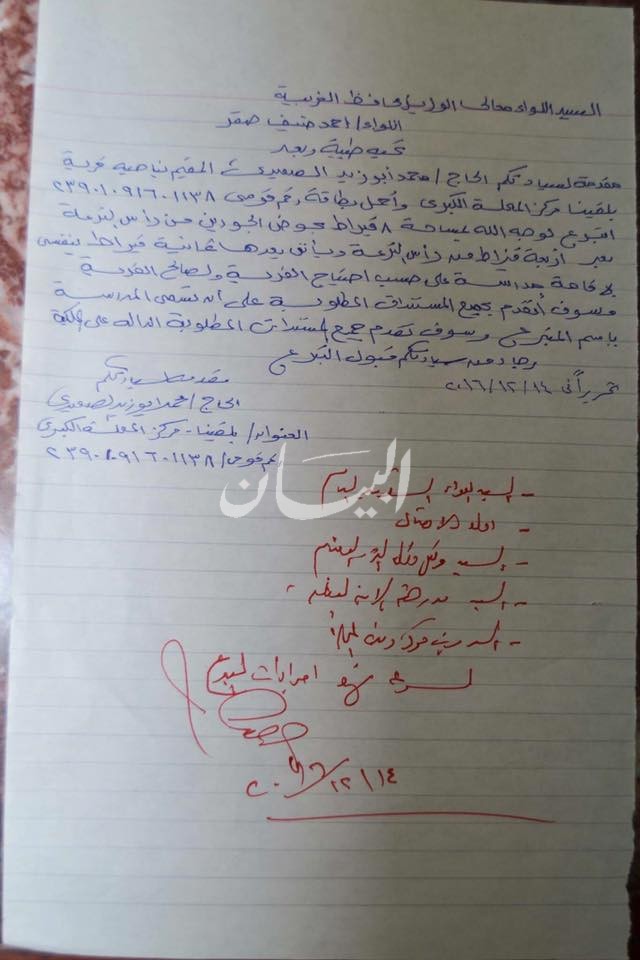 السيد اللواء معالى الوزير محافظ الغربية
اللواء / احمد ضيف صقر
تحيه طيبة وبعد
مقدمة لسيادتكم الحاج / محمد أبوزيد الصعيدى المقيم بناحيه قرية
بلقينا مركز المحلة الكبرى وأحمل بطاقة رقم قومى ٢٣٩٠١٠٩١٦٠١١٣٨
اتبرع لوجه الله بمساحة ٨ قيراط بحوض الجودين من رأس الترعة
بعد اربعة قيراط من رأس الترعة ويأتى بعدها ثمانية قيراط لنفسى
لإقامة مدرسة على حسب احتياج القرية ولصالح القرية
وسوف أتقدم بجميع المستندات المطلوبة على أن تسمى المدرسة
باسم المتبرع وسوف نقدم جميع المستندات المطلوبة الداله على الملكية
رجاء من سيادتكم قبول التبرع
تحريراً فى ٢٠١٦/١٢/١٤
مقدمه لسيادتكم
الحاج / محمد ابوزيد الصعيدى
العنوان / بلقينا - مركز المحلة الكبرى
رقم قومى / ٢٣٩٠١٠٩١٦٠١١٣٨
البيان
- السيد اللواء السكرتير العام
- السيد وكيل وزارة التربية والتعليم
- السيد مدير هيئة الابنية التعليمية
- السيد رئيس مركز ومدينة المحلة
لسرعة نهو اجراءات التبرع
٢٠١٦/١٢/١٤